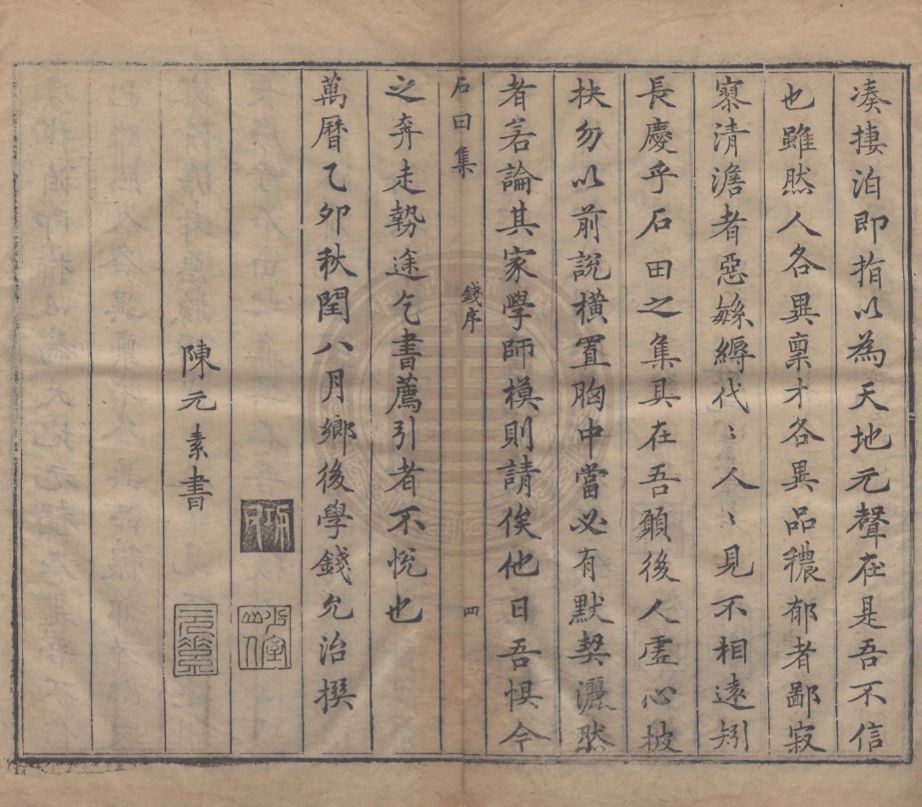 凑捿泊即指以為天地元聲在是吾不信
也雖然人各異稟才各異品穠郁者鄙寂
寥清澹者惡緐縟代〻人〻見不相遠矧
長慶乎石田之集具在吾願後人虛心披
抉勿以前說橫置胸中當必有默契灑然
者若論其家學師模則請俟他日吾惧今
石田集
錢序
四
之奔走勢途乞書薦引者不悅也
萬曆乙卯秋閏八月鄉後學錢允治撰
陳元素書